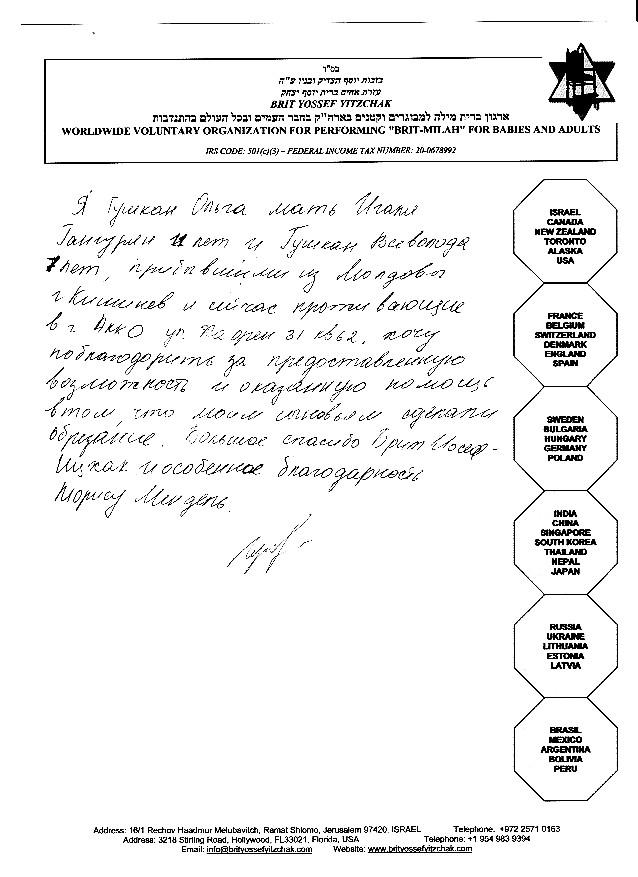 בס"ד
בזכות יוסף הצדיק ובניו ע"ה
עזרת אחים ברית יוסף יצחק
BRIT YOSSEF YITZCHAK
ארגון ברית מילה למבוגרים וקטנים בארה"ק בחבר העמים ובכל העולם בהתנדבות
WORLDWIDE VOLUNTARY ORGANIZATION FOR PERFORMING "BRIT-MILAH" FOR BABIES AND ADULTS
IRS CODE: 501(c)(3) – FEDERAL INCOME TAX NUMBER: 20-0678992
Я Гушкан Ольга мать
11 лет и Гушкан Всеволода
7 лет, прибывшими из Молдовы
г Кишинев и сейчас проживающие
в г. Акко ул. 31 кв 62, хочу
поблагодорить за предоставленную
возможность и оказанную помощь
в том, что моим сыновьям сделали
обрезание. Большое спасибо Брит Иосеф-
Ицхак и особенное благодарность
Мендель.
ISRAEL
CANADA
NEW ZEALAND
TORONTO
ALASKA
USA
FRANCE
BELGIUM
SWITZERLAND
DENMARK
ENGLAND
SPAIN
SWEDEN
BULGARIA
HUNGARY
GERMANY
POLAND
INDIA
CHINA
SINGAPORE
SOUTH KOREA
THAILAND
NEPAL
JAPAN
RUSSIA
UKRAINE
LITHUANIA
ESTONIA
LATVIA
BRASIL
MEXICO
ARGENTINA
BOLIVIA
PERU
Address: 16/1 Rechov Haadmur Melubavitch, Ramat Shlomo, Jerusalem 97420, ISRAEL Telephone. +972 2571 0163
Address: 3218 Stirling Road, Hollywood, FL33021, Florida, USA Telephone: +1 954 983 9394
Email: info@brityossefyitzchak.com Website: www.brityossefyitzchak.com